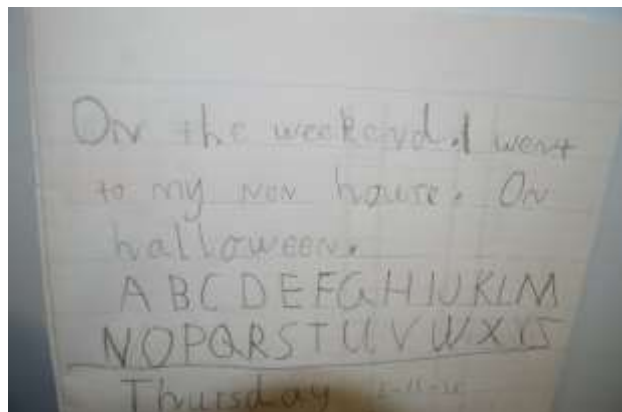 On the weekend. I went
to my Non house. On
halloween.
A B C D E F G H I J K L M
N O P Q R S T U V W X
Thursday